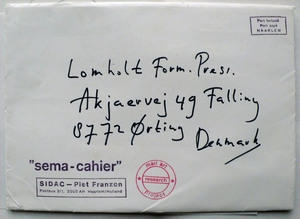 Port betaald
Port payé
HAARLEM
Lomholt Form. Press.
Akjaervej 49 Falling
8772 Ørting
Denmark
"sema-cahier"
SIDAC - Piet Franzen
Postbus 211, 2000 AH Haarlem/Holland
mail art
research